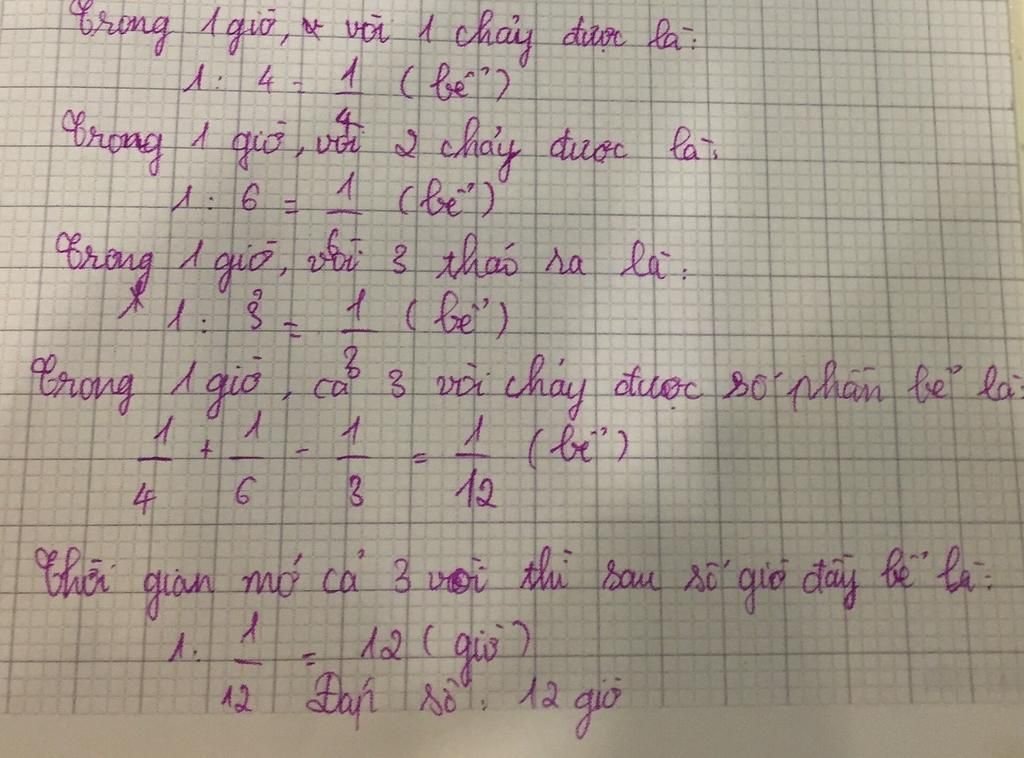 Trong 1 giờ, vòi 1 chảy được là:
1 : 4 = 1/4 (bể)
Trong 1 giờ, vòi 2 chảy được là:
1 : 6 = 1/6 (bể)
Trong 1 giờ, vòi 3 tháo ra là:
1 : 3 = 1/3 (bể)
Trong 1 giờ, cả 3 vòi chảy được số phần bể là:
1/4 + 1/6 - 1/3 = 1/12 (bể)
Thời gian mở cả 3 vòi thì sau số giờ đầy bể là:
1 : 1/12 = 12 (giờ)
Đáp số: 12 giờ